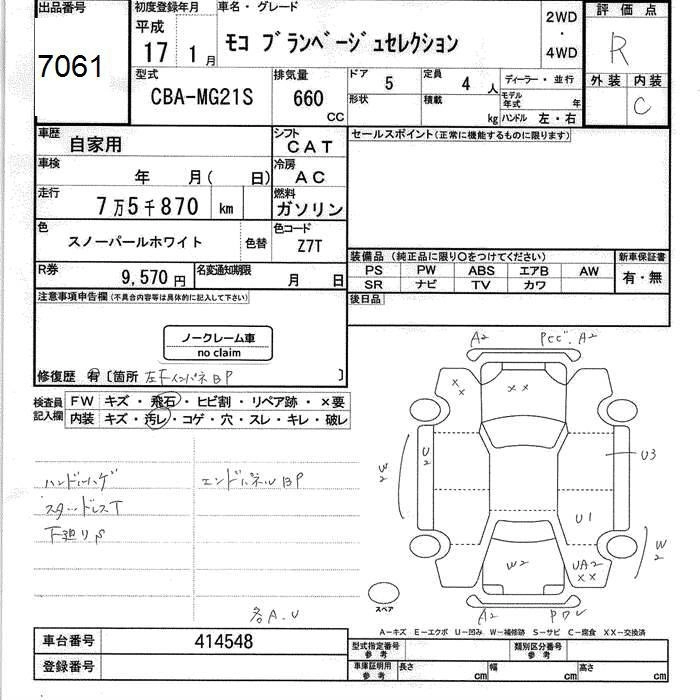 出品番号
7061
初度登録年月
平成
17 1月
車名・グレード
モコ ブランベージュセレクション
2WD
・
4WD
評価点
R
外装 内装
C
型式
CBA-MG21S
排気量
660 CC
ドア 5
定員 4 人
形状
積載 kg
ディーラー・並行
モデル年式 年
ハンドル 左・右
車歴
自家用
シフト
CAT
車検
年 月( 日)
冷房
AC
走行
7万5千870 km
燃料
ガソリン
色
スノーパールホワイト
色替
色コード
Z7T
R券
9,570円
名変通知期限
月 日
セールスポイント(正常に機能するものに限ります)
装備品 (純正品に限り○をつけてください)
PS PW ABS エアB AW
SR ナビ TV カワ
新車保証書
有・無
後日品
注意事項申告欄(不具合内容等は具体的に記入して下さい)
ノークレーム車
no claim
修復歴 有 〔箇所 左下インパネBP 〕
検査員記入欄
FW キズ・飛石・ヒビ割・リペア跡・×要
内装 キズ・汚レ・コゲ・穴・スレ・キレ・破レ
ハンドルハゲ
エンドパネルBP
スタッドレスT
下廻りS
各A.U
A2
A2
××
××
U2
W2
U3
U1
W2
W2
UA2
××
A2
スペア
A-キズ E-エクボ U-凹み W-補修跡 S-サビ C-腐食 XX-交換済
車台番号
414548
登録番号
型式指定番号
参考
類別区分番号
参考
車庫証明用
参考
長さ cm
幅 cm
高さ cm